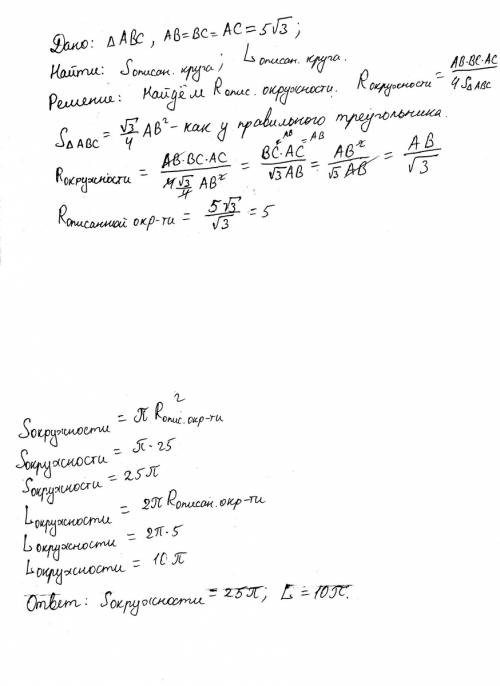 Дано: △ABC, AB=BC=AC=5√3;
Найти: Sописан. круга; Lописан. круга.
Решение: Найдём Rопис. окружности. Rокружности = AB·BC·AC / 4S△ABC
S△ABC = √3/4 AB² - как у правильного треугольника.
Rокружности = AB·BC·AC / 4 √3/4 AB² = BC·AC / √3AB = AB² / √3 AB = AB / √3
AB = AB
Rописанной окр-ти = 5√3 / √3 = 5
Sокружности = π R²опис. окр-ти
Sокружности = π·25
Sокружности = 25π
Lокружности = 2π Rописан. окр-ти
Lокружности = 2π·5
Lокружности = 10π
Ответ: Sокружности = 25π; L = 10π.